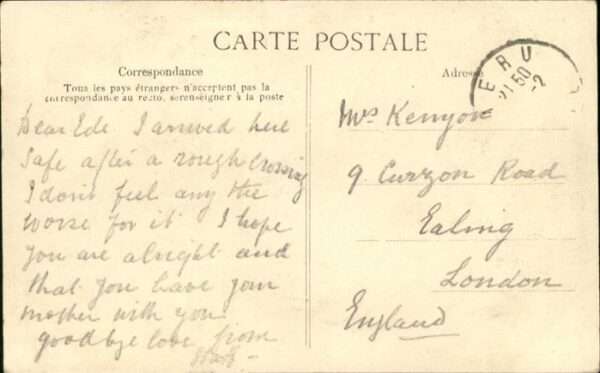 CARTE POSTALE
Correspondance
Tous les pays étrangers n'acceptent pas la
correspondance au recto, se renseigner à la poste
Adresse
ERU
21 50
2
Dear Ede I arrived here
safe after a rough Crossing
I dont feel any the
worse for it I hope
you are alright and
that you have your
mother with you
goodbye love from
Mrs Kenyon
9 Curzon Road
Ealing
London
England